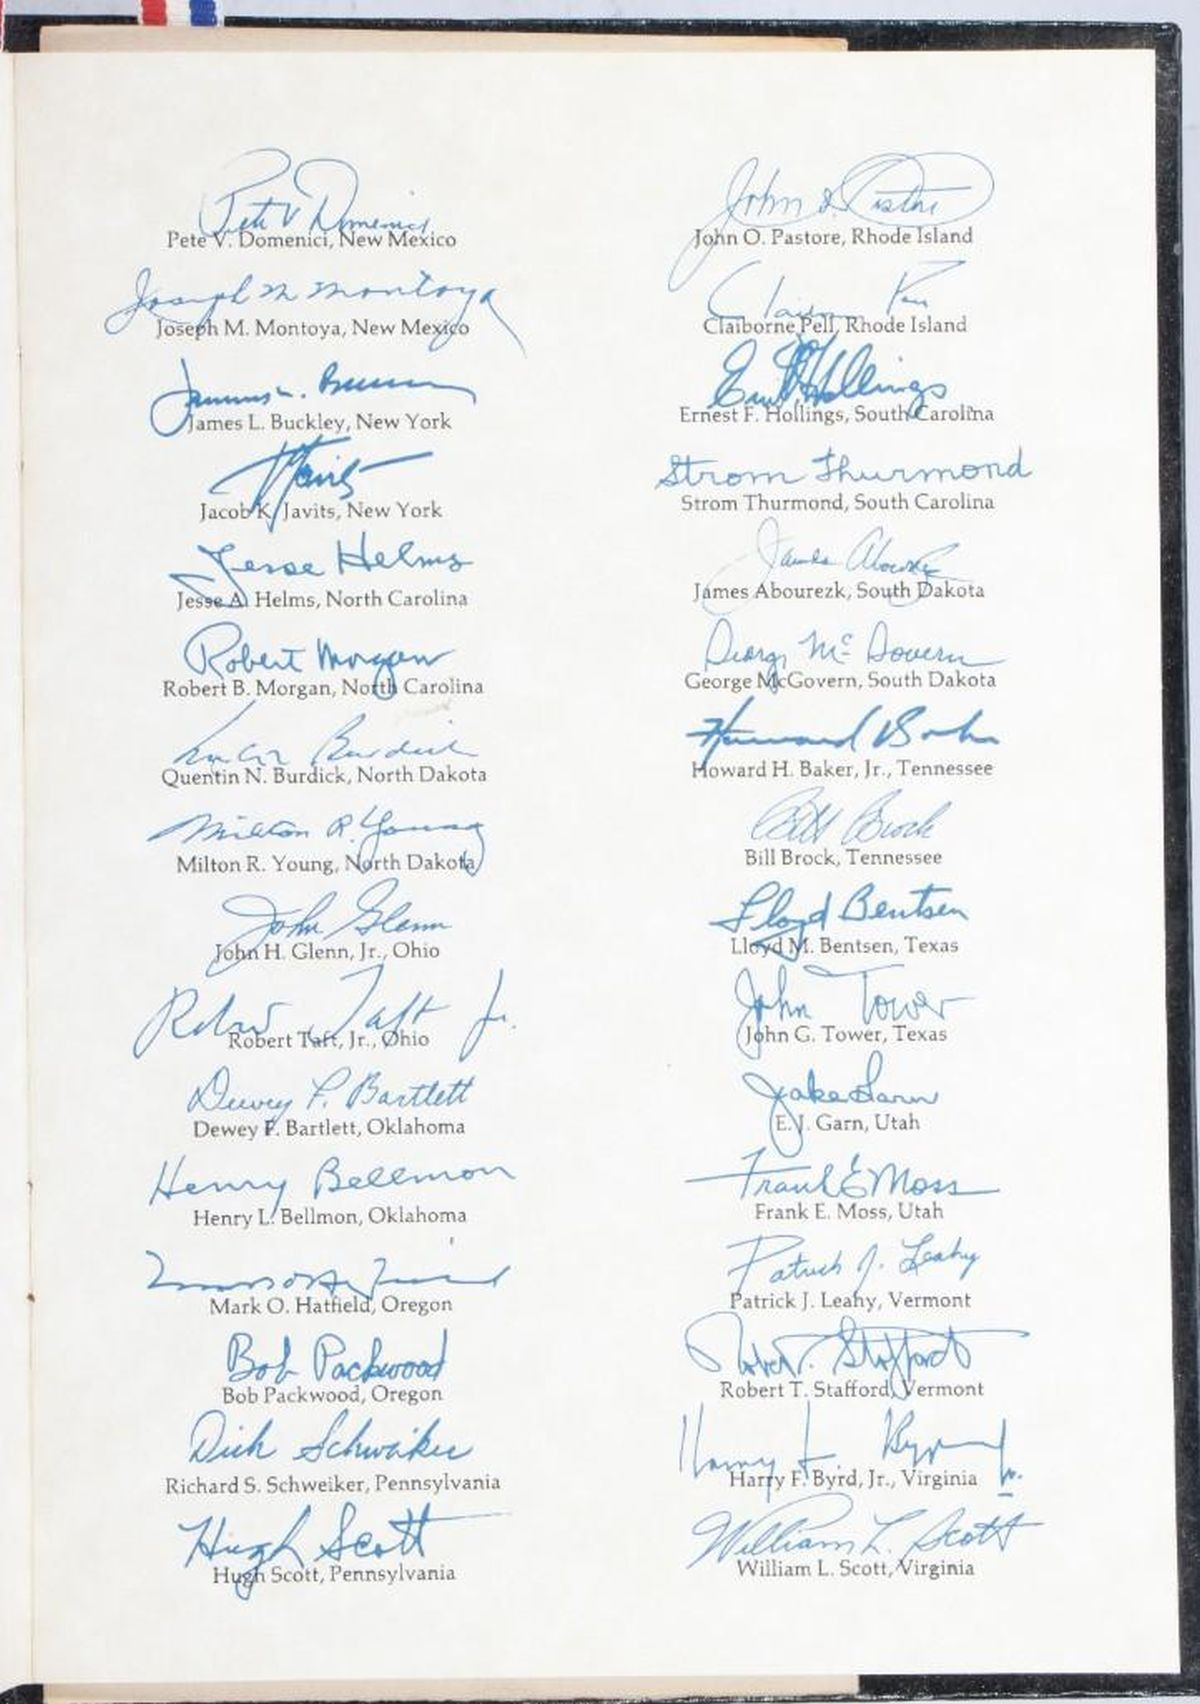 Pete V Domenici
Pete V. Domenici, New Mexico
Joseph M Montoya
Joseph M. Montoya, New Mexico
James L. Buckley, New York
J Javits
Jacob K. Javits, New York
Jesse Helms
Jesse A. Helms, North Carolina
Robert Morgan
Robert B. Morgan, North Carolina
Burdick
Quentin N. Burdick, North Dakota
Milton R. Young
Milton R. Young, North Dakota
John Glenn
John H. Glenn, Jr., Ohio
Robert Taft Jr.
Robert Taft, Jr., Ohio
Dewey F. Bartlett
Dewey F. Bartlett, Oklahoma
Henry Bellmon
Henry L. Bellmon, Oklahoma
Mark O. Hatfield, Oregon
Bob Packwood
Bob Packwood, Oregon
Dick Schweiker
Richard S. Schweiker, Pennsylvania
Hugh Scott
Hugh Scott, Pennsylvania
John O. Pastore
John O. Pastore, Rhode Island
Claiborne Pell, Rhode Island
Hollings
Ernest F. Hollings, South Carolina
Strom Thurmond
Strom Thurmond, South Carolina
James Abourezk
James Abourezk, South Dakota
George McGovern
George McGovern, South Dakota
Howard Baker
Howard H. Baker, Jr., Tennessee
Bill Brock
Bill Brock, Tennessee
Lloyd Bentsen
Lloyd M. Bentsen, Texas
John Tower
John G. Tower, Texas
Jake Garn
E. J. Garn, Utah
Frank E Moss
Frank E. Moss, Utah
Patrick J. Leahy
Patrick J. Leahy, Vermont
Robert T. Stafford
Robert T. Stafford, Vermont
Harry F. Byrd Jr.
Harry F. Byrd, Jr., Virginia
William L. Scott
William L. Scott, Virginia